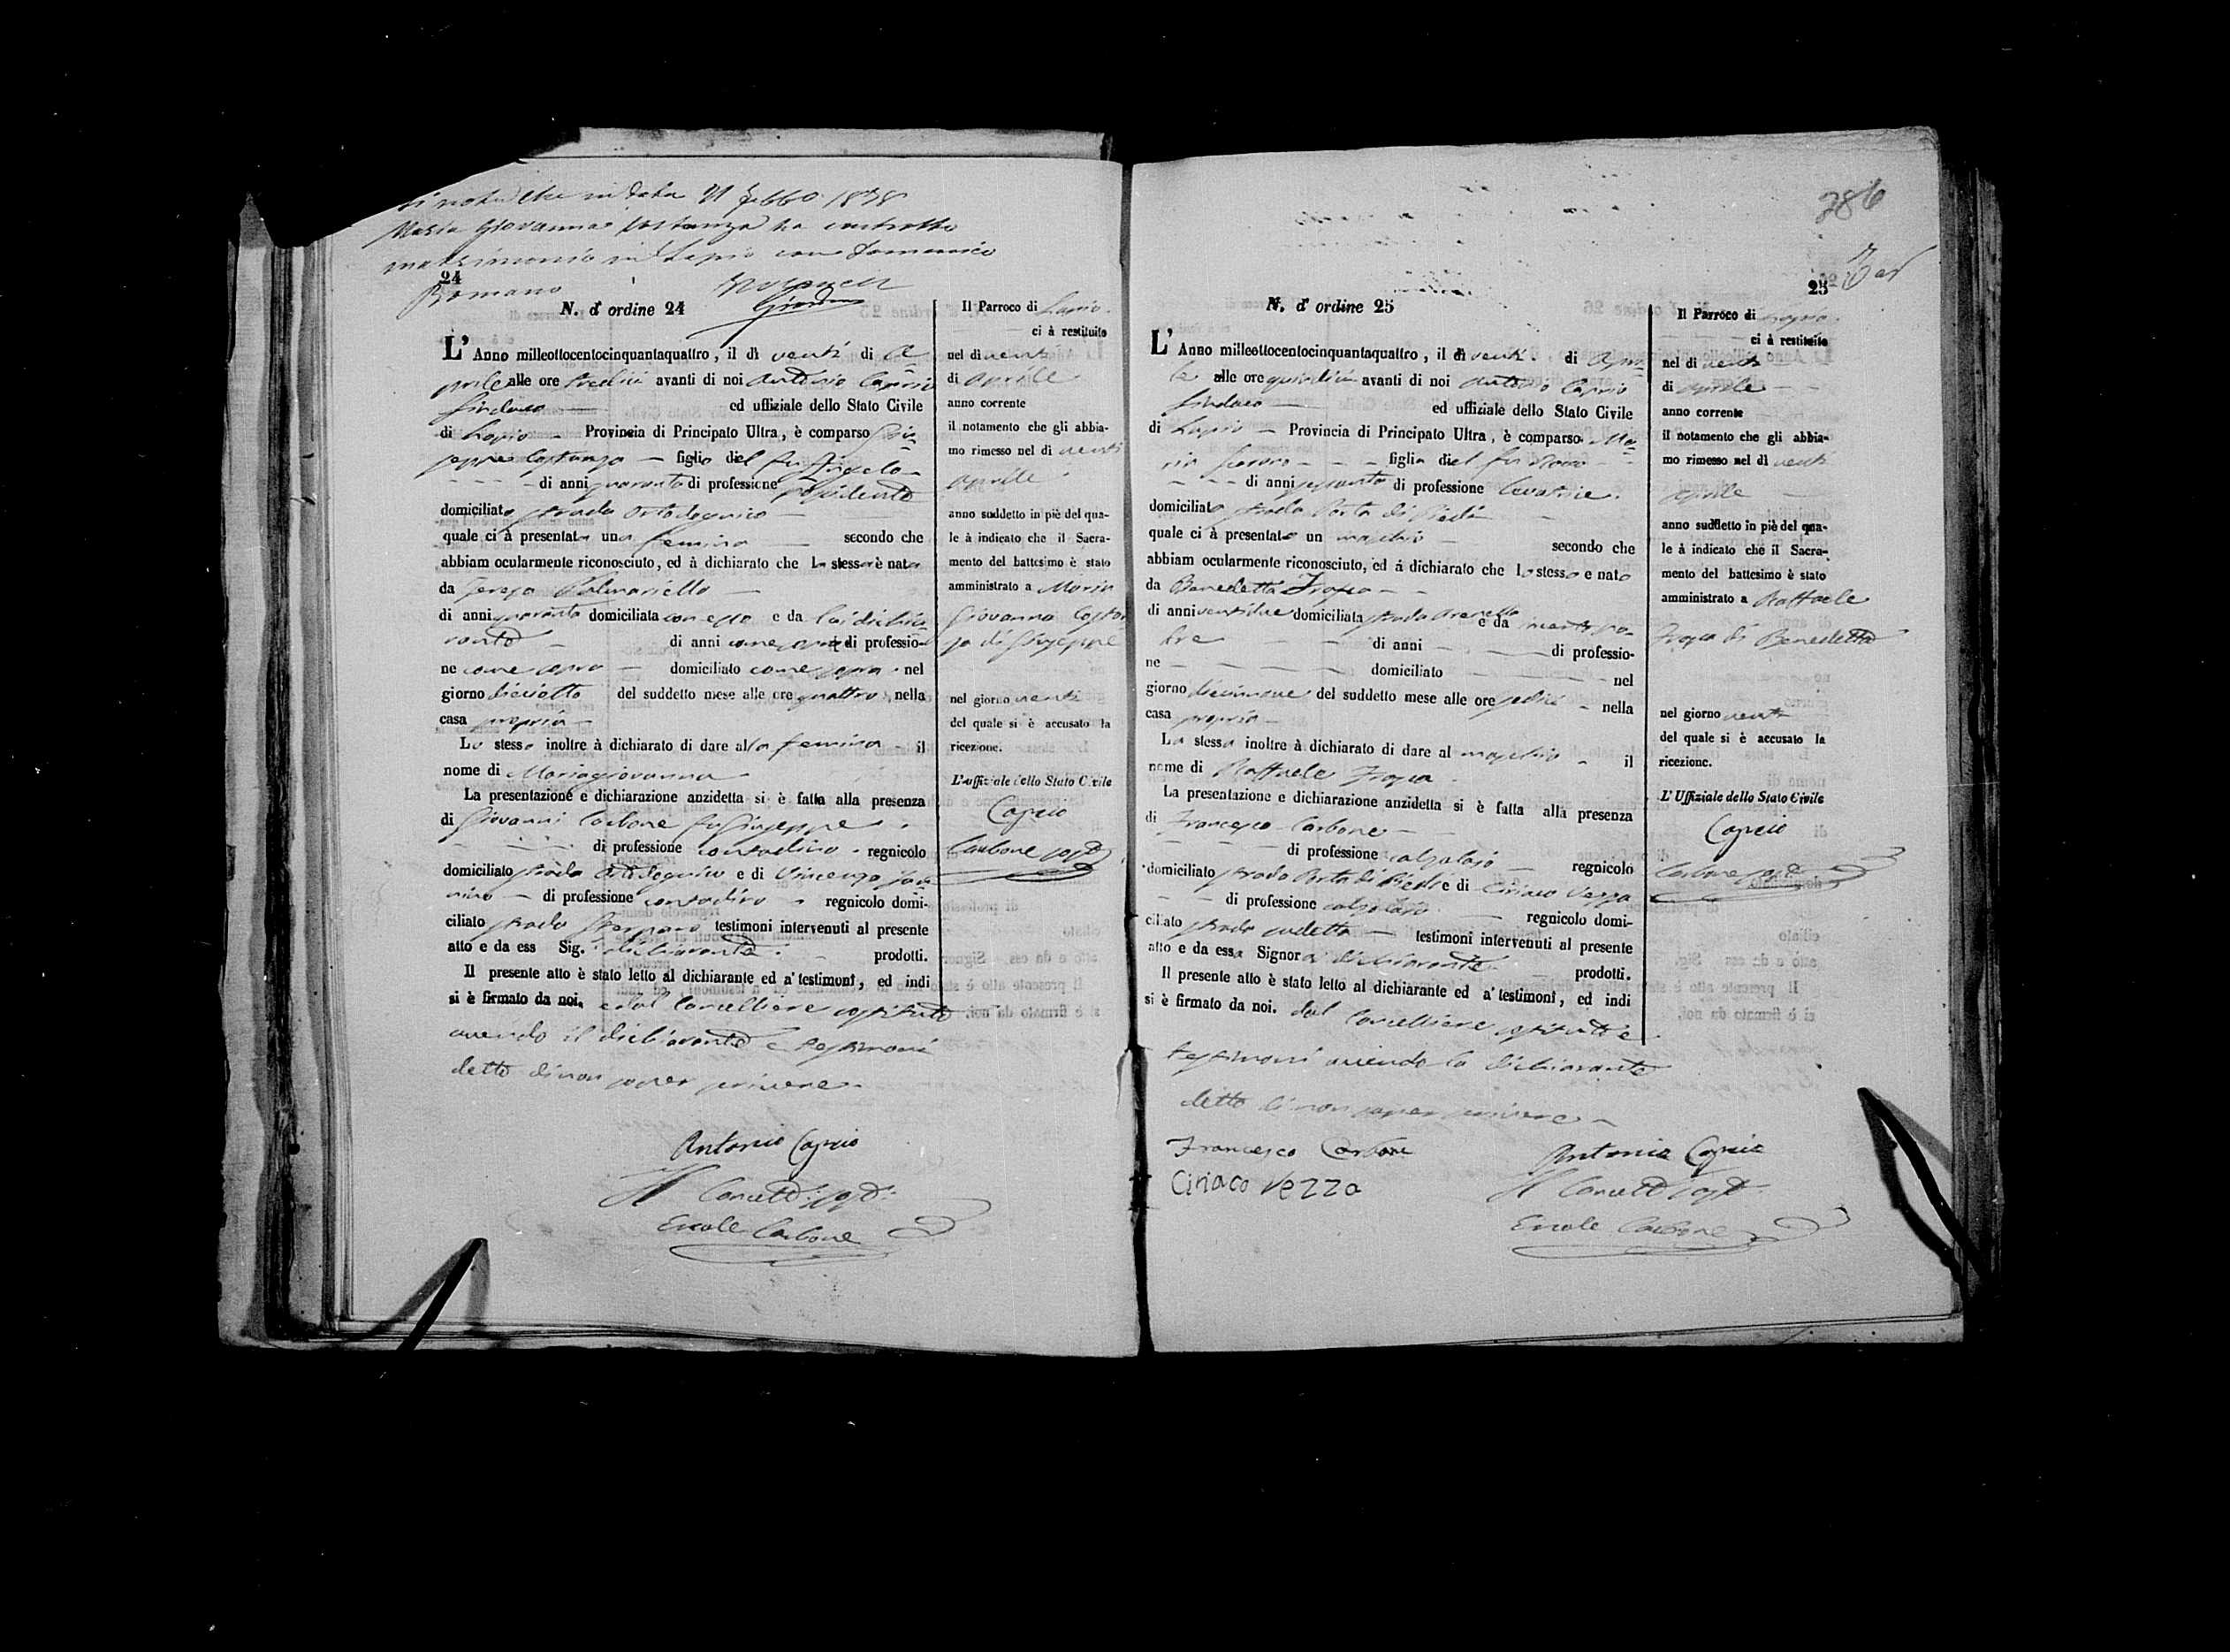 si noti che in data 21 Febb.o 1878
Maria Giovanna Costanza ha contratto
matrimonio in Lapio con Domenico
24
Romano
N. d' ordine 24
L' Anno millеottocentocinquantaquattro, il dì venti di A-
prile alle ore tredici avanti di noi Antonio Caprio
Sindaco ed uffiziale dello Stato Civile
di Lapio Provincia di Principato Ultra, è comparso Giu-
seppe Costanza figlio del fu Angelo
di anni quaranta di professione possidente
domiciliato strada
quale ci à presentato una femina secondo che
abbiam ocularmente riconosciuto, ed à dichiarato che la stessa è nata
da Teresa
di anni quaranta domiciliata con esso e da lui dichia-
rante di anni come sopra di professio-
ne come sopra domiciliato come sopra nel
giorno dieciotto del suddetto mese alle ore quattro nella
casa propria
Lo stesso inoltre à dichiarato di dare alla femina il
nome di Mariagiovanna
La presentazione e dichiarazione anzidetta si è fatta alla presenza
di Giovanni Carbone fu Giuseppe
di professione contadino regnicolo
domiciliato strada e di Vincenzo
di professione contadino regnicolo domi-
ciliato strada testimoni intervenuti al presente
atto e da ess Sig. dichiarante prodotti.
Il presente atto è stato letto al dichiarante ed a' testimoni, ed indi
si è firmato da noi, e dal Cancelliere sostituto
avendo il dichiarante e testimoni
detto di non saper scrivere
Antonio Caprio
Il Cancell: sost:
Ercole Carbone
Il Parroco di Lapio
ci à restituito
nel dì venti
di aprile
anno corrente
il notamento che gli abbia-
mo rimesso nel dì venti
aprile
anno suddetto in piè del qua-
le à indicato che il Sacra-
mento del battesimo è stato
amministrato a Maria
Giovanna Costan-
za di Giuseppe
nel giorno venti
del quale si è accusato la
ricezione.
L'uffiziale dello Stato Civile
Caprio
Carbone sost
286
25
N. d' ordine 25
L' Anno milleottocentocinquantaquattro, il dì venti di Apri-
le alle ore quindici avanti di noi Antonio Caprio
Sindaco ed uffiziale dello Stato Civile
di Lapio Provincia di Principato Ultra, è comparso Ma-
ria figlia del fu
di anni sessanta di professione levatrice
domiciliato strada Porta di Piedi
quale ci à presentato un maschio secondo che
abbiam ocularmente riconosciuto, ed à dichiarato che lo stesso e nato
da Benedetta
di anni ventidue domiciliata strada e da incerto pa-
dre di anni di professio-
ne domiciliato nel
giorno diecinnove del suddetto mese alle ore sedici nella
casa propria
La stessa inoltre à dichiarato di dare al maschio il
nome di Raffaele
La presentazione e dichiarazione anzidetta si è fatta alla presenza
di Francesco Carbone
di professione calzolajo regnicolo
domiciliato strada Porta di Piedi e di Ciriaco Vezza
di professione calzolajo regnicolo domi-
ciliato strada sudetta testimoni intervenuti al presente
atto e da essa Signora dichiarante prodotti.
Il presente atto è stato letto al dichiarante ed a' testimoni, ed indi
si è firmato da noi, dal Cancelliere sostituto e
testimoni avendo la dichiarante
detto di non saper scrivere
Francesco Carbone
Ciriaco Vezza
Antonio Caprio
Il Cancell sost
Ercole Carbone
Il Parroco di Lapio
ci à restituito
nel dì venti
di aprile
anno corrente
il notamento che gli abbia-
mo rimesso nel dì venti
aprile
anno suddetto in piè del qua-
le à indicato che il Sacra-
mento del battesimo è stato
amministrato a Raffaele
di Benedetta
nel giorno venti
del quale si è accusato la
ricezione.
L' Uffiziale dello Stato Civile
Caprio
Carbone sost